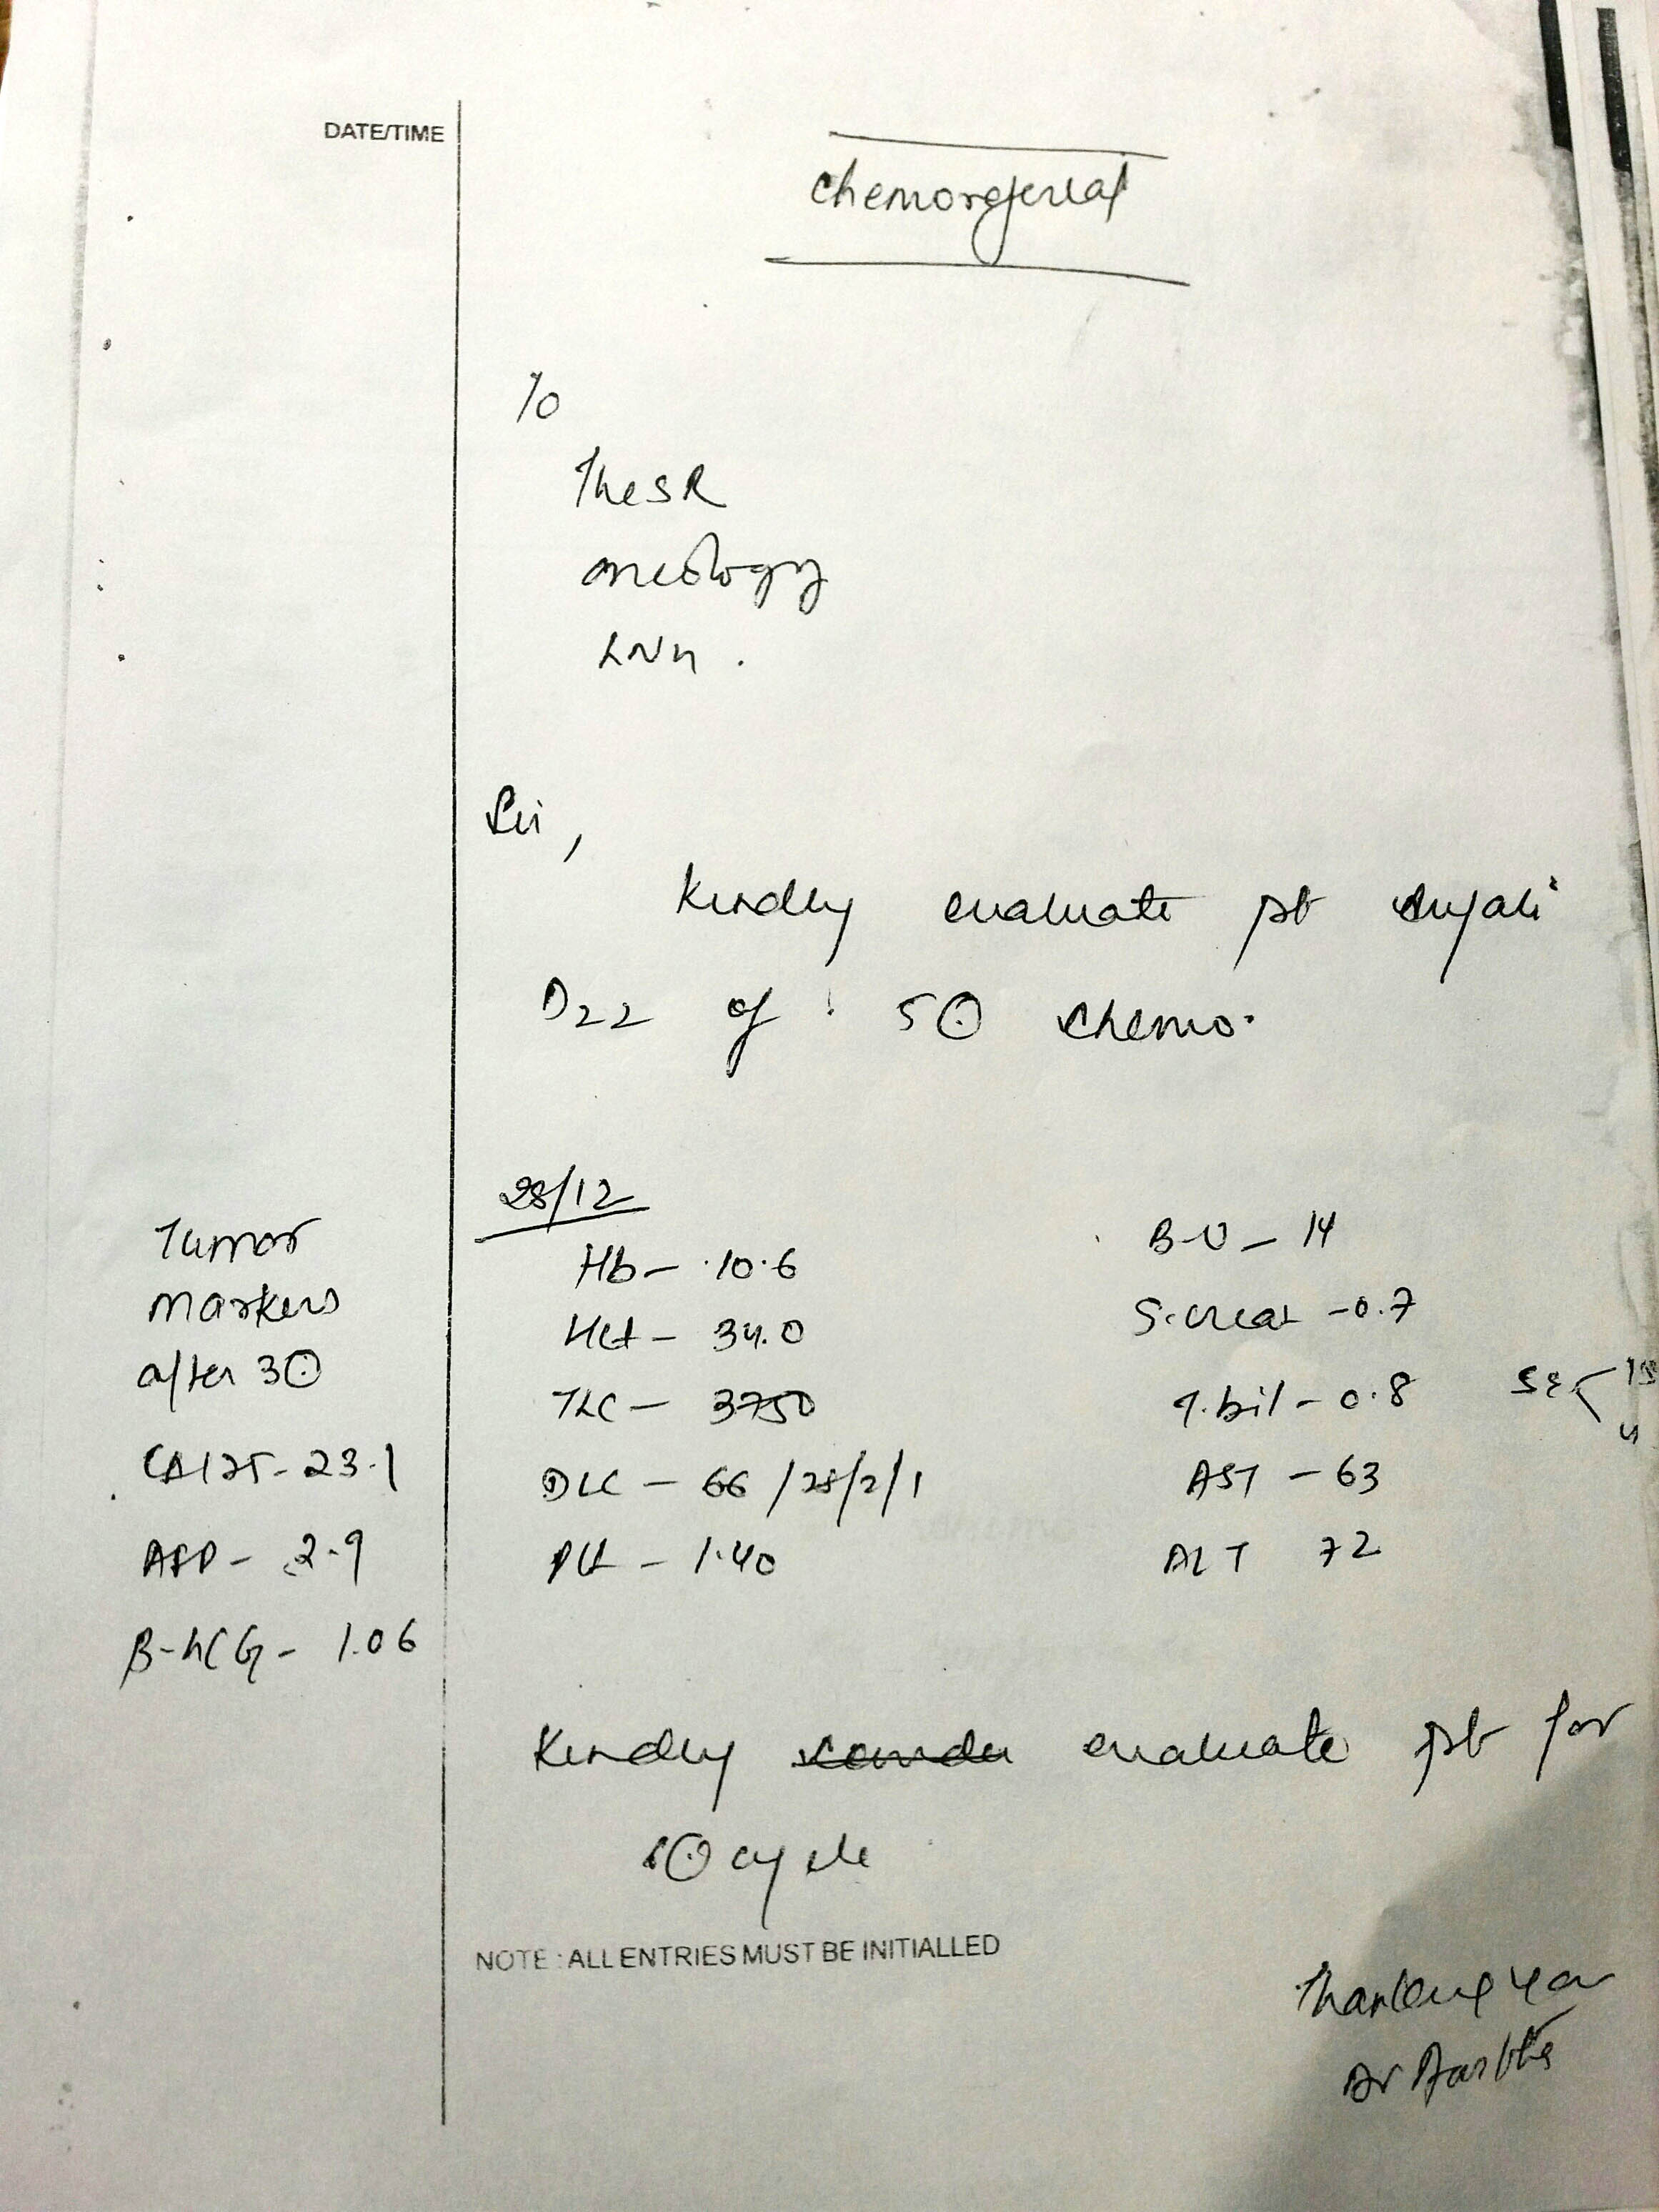 DATE/TIME
Chemoreferral
To
The SR
oncology
LNH.
Sir,
Kindly evaluate pt Anjali
D22 of 5⊙ chemo.
28/12
Hb - 10.6
Hct - 34.0
TLC - 3750
DLC - 66/28/2/1
Plt - 1.40
B.U - 14
S.creat - 0.7
T.bil - 0.8
SE
AST - 63
ALT 72
Tumor
markers
after 3⊙
CA125 - 23.1
AFP - 2.9
β-hCG - 1.06
Kindly evaluate pt for
⊙ cycle
NOTE : ALL ENTRIES MUST BE INITIALLED
Thanking you
Dr